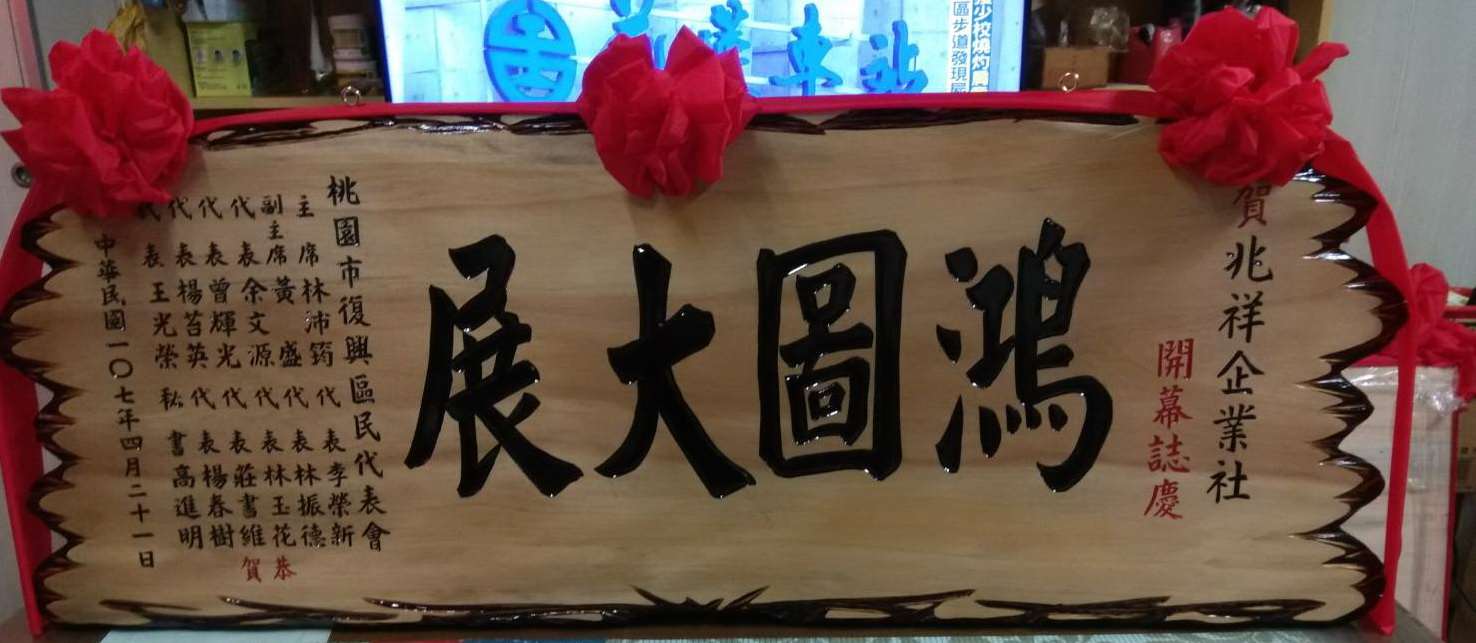 賀 兆祥企業社
開幕誌慶
鴻圖大展
桃園市復興區民代表會
主席 林沛筠
副主席 黃盛
代表 余文源
代表 曾輝光
代表 楊苔英
代表 王光榮
代表 李榮新
代表 林振德
代表 林玉花
代表 莊書維
代表 楊春樹
秘書 高進明
恭賀
中華民國一〇七年四月二十一日
車站
少校燒灼
區步道發現